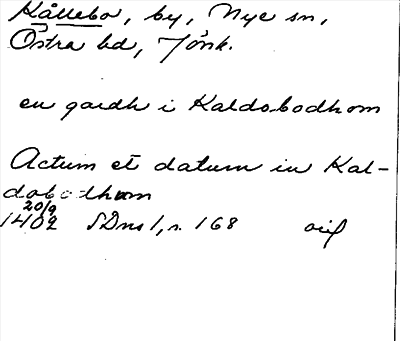 Kållebo, by, Nye sn,
Östra hd, Jönk.
en gardh i Kaldobodhom
Actum et datum in Kal-
dobodhom
20/9
1402 SDns 1, s. 168